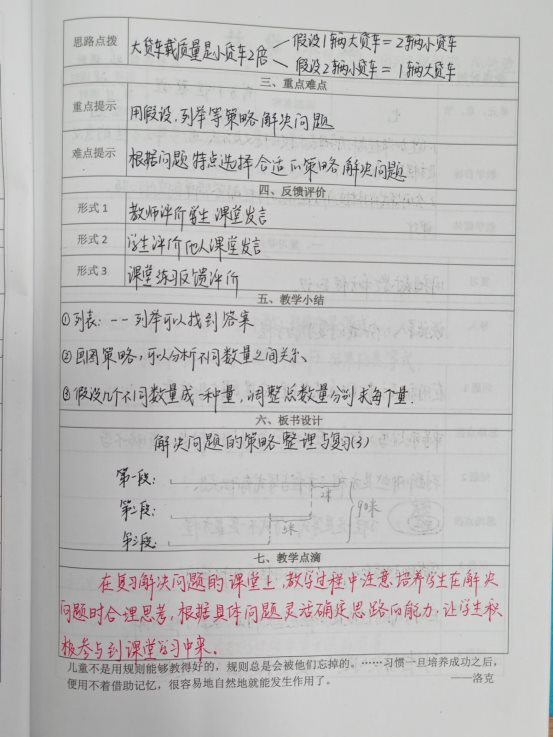 思路点拨
大货车载质量是小货车2倍
假设1辆大货车=2辆小货车
假设2辆小货车=1辆大货车
三、重点难点
重点提示 用假设、列举等策略解决问题
难点提示 根据问题特点选择合适的策略解决问题
四、反馈评价
形式1 教师评价学生课堂发言
形式2 学生评价他人课堂发言
形式3 课堂练习反馈评价
五、教学小结
①列表:一一列举可以找到答案
②画图策略,可以分析不同数量之间关系、
③假设几个不同数量成一种量,调整总数量分别求每个量.
六、板书设计
解决问题的策略整理与复习(3)
第一段:
第二段:
第三段:
90米
七、教学点滴
在复习解决问题的课堂上,教学过程中注意培养学生在解决
问题时合理思考,根据具体问题灵活确定思路的能力,让学生积
极参与到课堂学习中来。
儿童不是用规则能够教得好的,规则总是会被他们忘掉的。……习惯一旦培养成功之后,
便用不着借助记忆,很容易地自然地就能发生作用了。 ——洛克